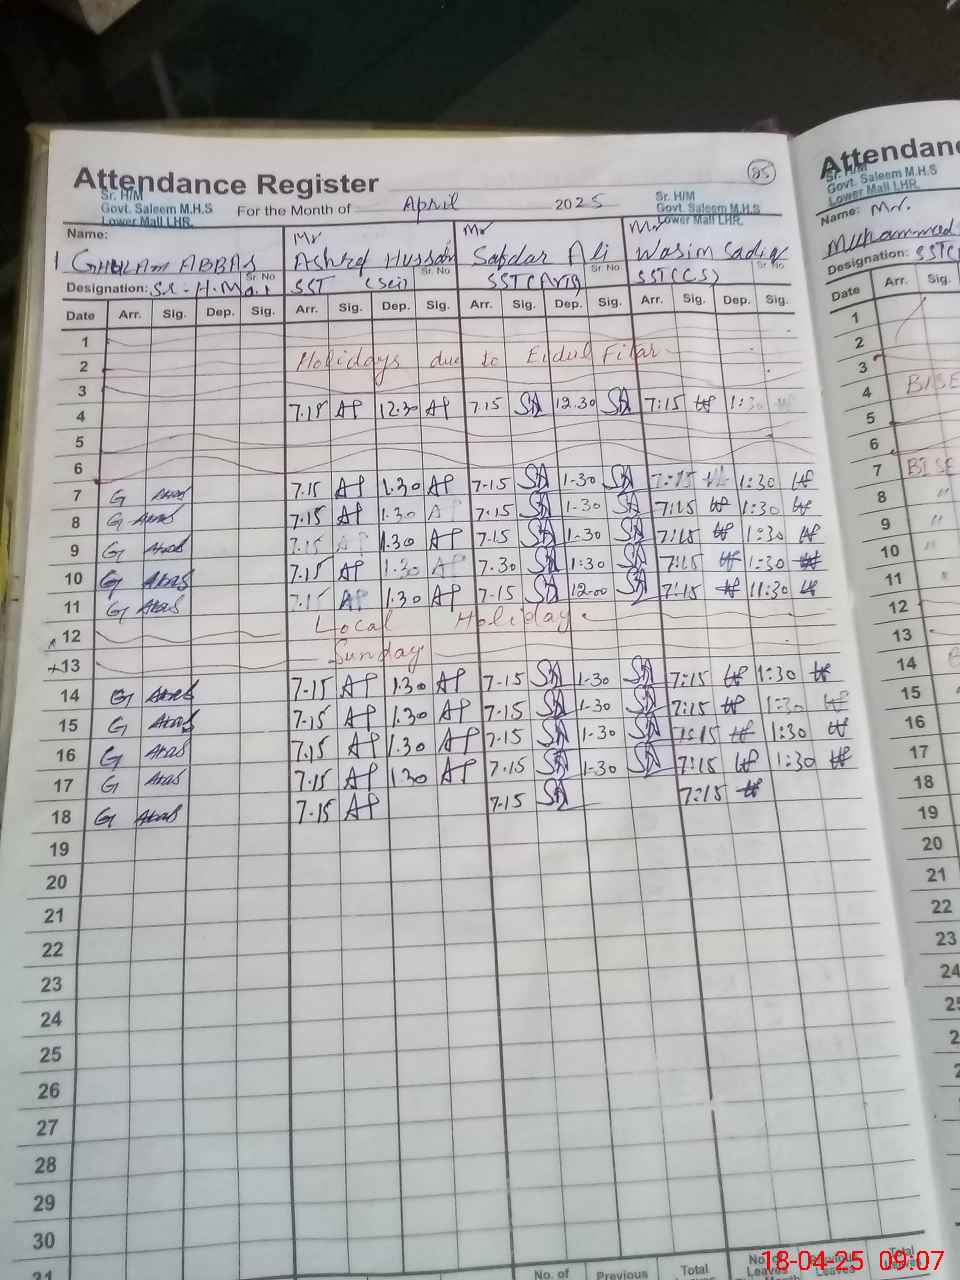 Attendance Register
85
Sr. H/M
Govt. Saleem M.H.S
Lower Mall LHR.
For the Month of April 2025
Sr. H/M
Govt. Saleem M.H.S
Lower Mall LHR.
Name: Mr Mr Mr
1 GHULAM ABBAS Ashraf Hussain Safdar Ali Wasim Sadiq
Sr. No Sr. No Sr. No Sr. No
Designation: Sr-H.Mas SST (Sci) SST (Arts) SST (CS)
Date Arr. Sig. Dep. Sig. Arr. Sig. Dep. Sig. Arr. Sig. Dep. Sig. Arr. Sig. Dep. Sig.
1
2 Holidays due to Eidul Fitar
3
4 7.15 AP 12.30 AP 7.15 SA 12.30 SA 7:15 1:30
5
6
7 G Abbas 7.15 AP 1.30 AP 7.15 SA 1.30 SA 7:15 1:30
8 G Abbas 7.15 AP 1.30 AP 7.15 SA 1.30 SA 7:15 1:30
9 G Abbas 7.15 AP 1.30 AP 7.15 SA 1.30 SA 7:15 1:30
10 G Abbas 7.15 AP 1.30 AP 7.30 SA 1:30 SA 7:15 1:30
11 G Abbas 7.15 AP 1.30 AP 7.15 SA 12.00 SA 7:15 11:30
12 Local Holiday
13 Sunday
14 G Abbas 7.15 AP 1.30 AP 7.15 SA 1.30 SA 7:15 1:30
15 G Abbas 7.15 AP 1.30 AP 7.15 SA 1.30 SA 7:15 1:30
16 G Abbas 7.15 AP 1.30 AP 7.15 SA 1.30 SA 7:15 1:30
17 G Abbas 7.15 AP 1.30 AP 7.15 SA 1.30 SA 7:15 1:30
18 G Abbas 7.15 AP 7.15 SA 7:15
19
20
21
22
23
24
25
26
27
28
29
30
31
No. of Previous Total No. of Leaves Previous Leaves Total Leaves
Attendanc
Sr. H/M
Govt. Saleem M.H.S
Lower Mall LHR.
Name: Mr.
Muhammad
Designation: SST
Date Arr. Sig.
1
2
3
4 BISE
5
6
7 BISE
8 "
9 "
10 "
11 "
12
13
14
15
16
17
18
19
20
21
22
23
24
18-04-25 09:07